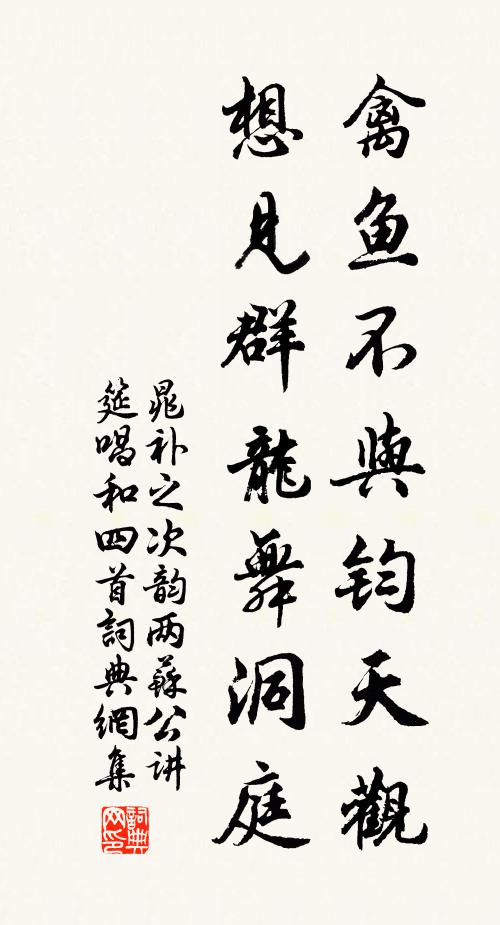 禽鱼不與钧天觀
想見群龍舞洞庭
晁补之次韵两蘇公讲
筵唱和四首詞典網集
詞典网印